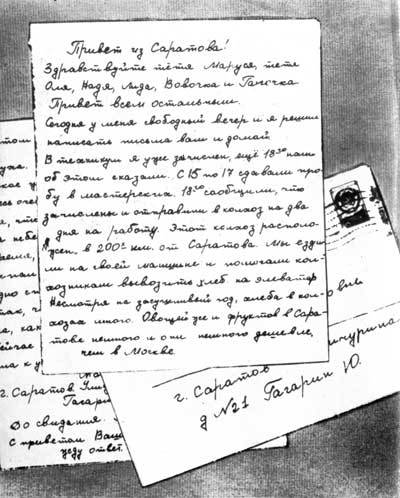 Привет из Саратова!
Здравствуйте тётя Маруся, тётя
Оля, Надя, Лида, Вовочка и Галочка
Привет всем остальным.
Сегодня у меня свободный вечер и я решил
написать письма вам и домой
В техникум я уже зачислен, ещё 18го нам
об этом сказали. С 15 по 17 сдавали про
бу в мастерских. 18го сообщили, что
зачислены и отправили в колхоз на два
дня на работу. Этот колхоз располо-
жен в 200х км. от Саратова. Мы езди
ли на своей машине и помогали кол-
хозникам вывозить хлеб на элеватор
Несмотря на засушливый год, хлеба в кол-
хозах много. Овощей же и фруктов в Сара-
тове немного и они немного дешевле,
чем в Москве
г. Саратов
До свидания.
С приветом Ваш
жду ответ.
Мичурина
г. Саратов
д №21 Гагарин Ю.